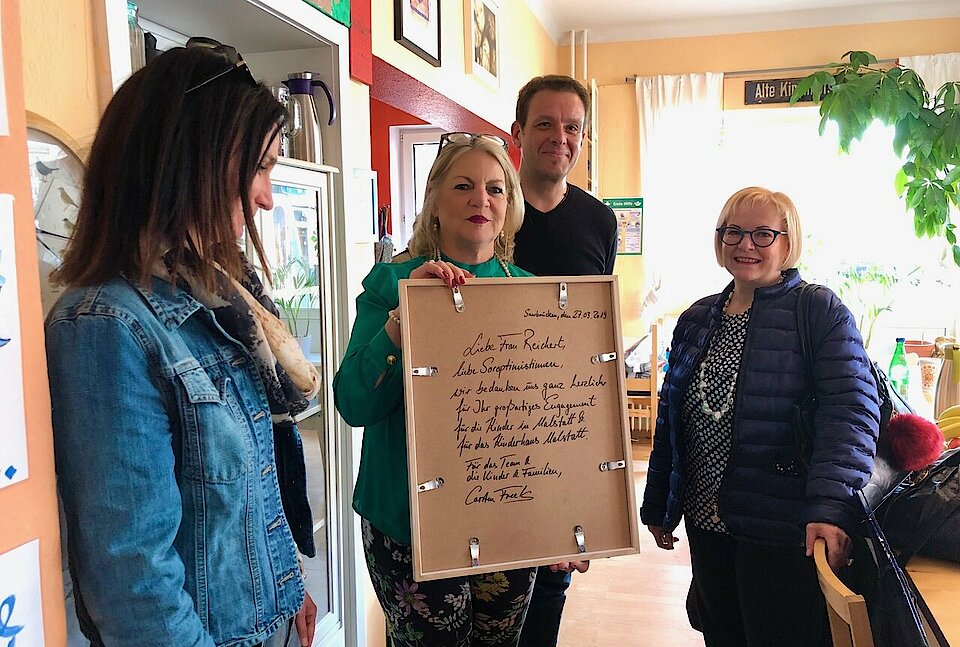 Alte Kir
Erste Hilfe
Saarbrücken, den 27.03.2019
Liebe Frau Reichert,
liebe Soroptimistinnen,
wir bedanken uns ganz herzlich
für Ihr großartiges Engagement
für die Kinder in Malstatt &
für das Kinderhaus Malstatt.
Für das Team &
die Kinder & Familien,
Carsten Freels